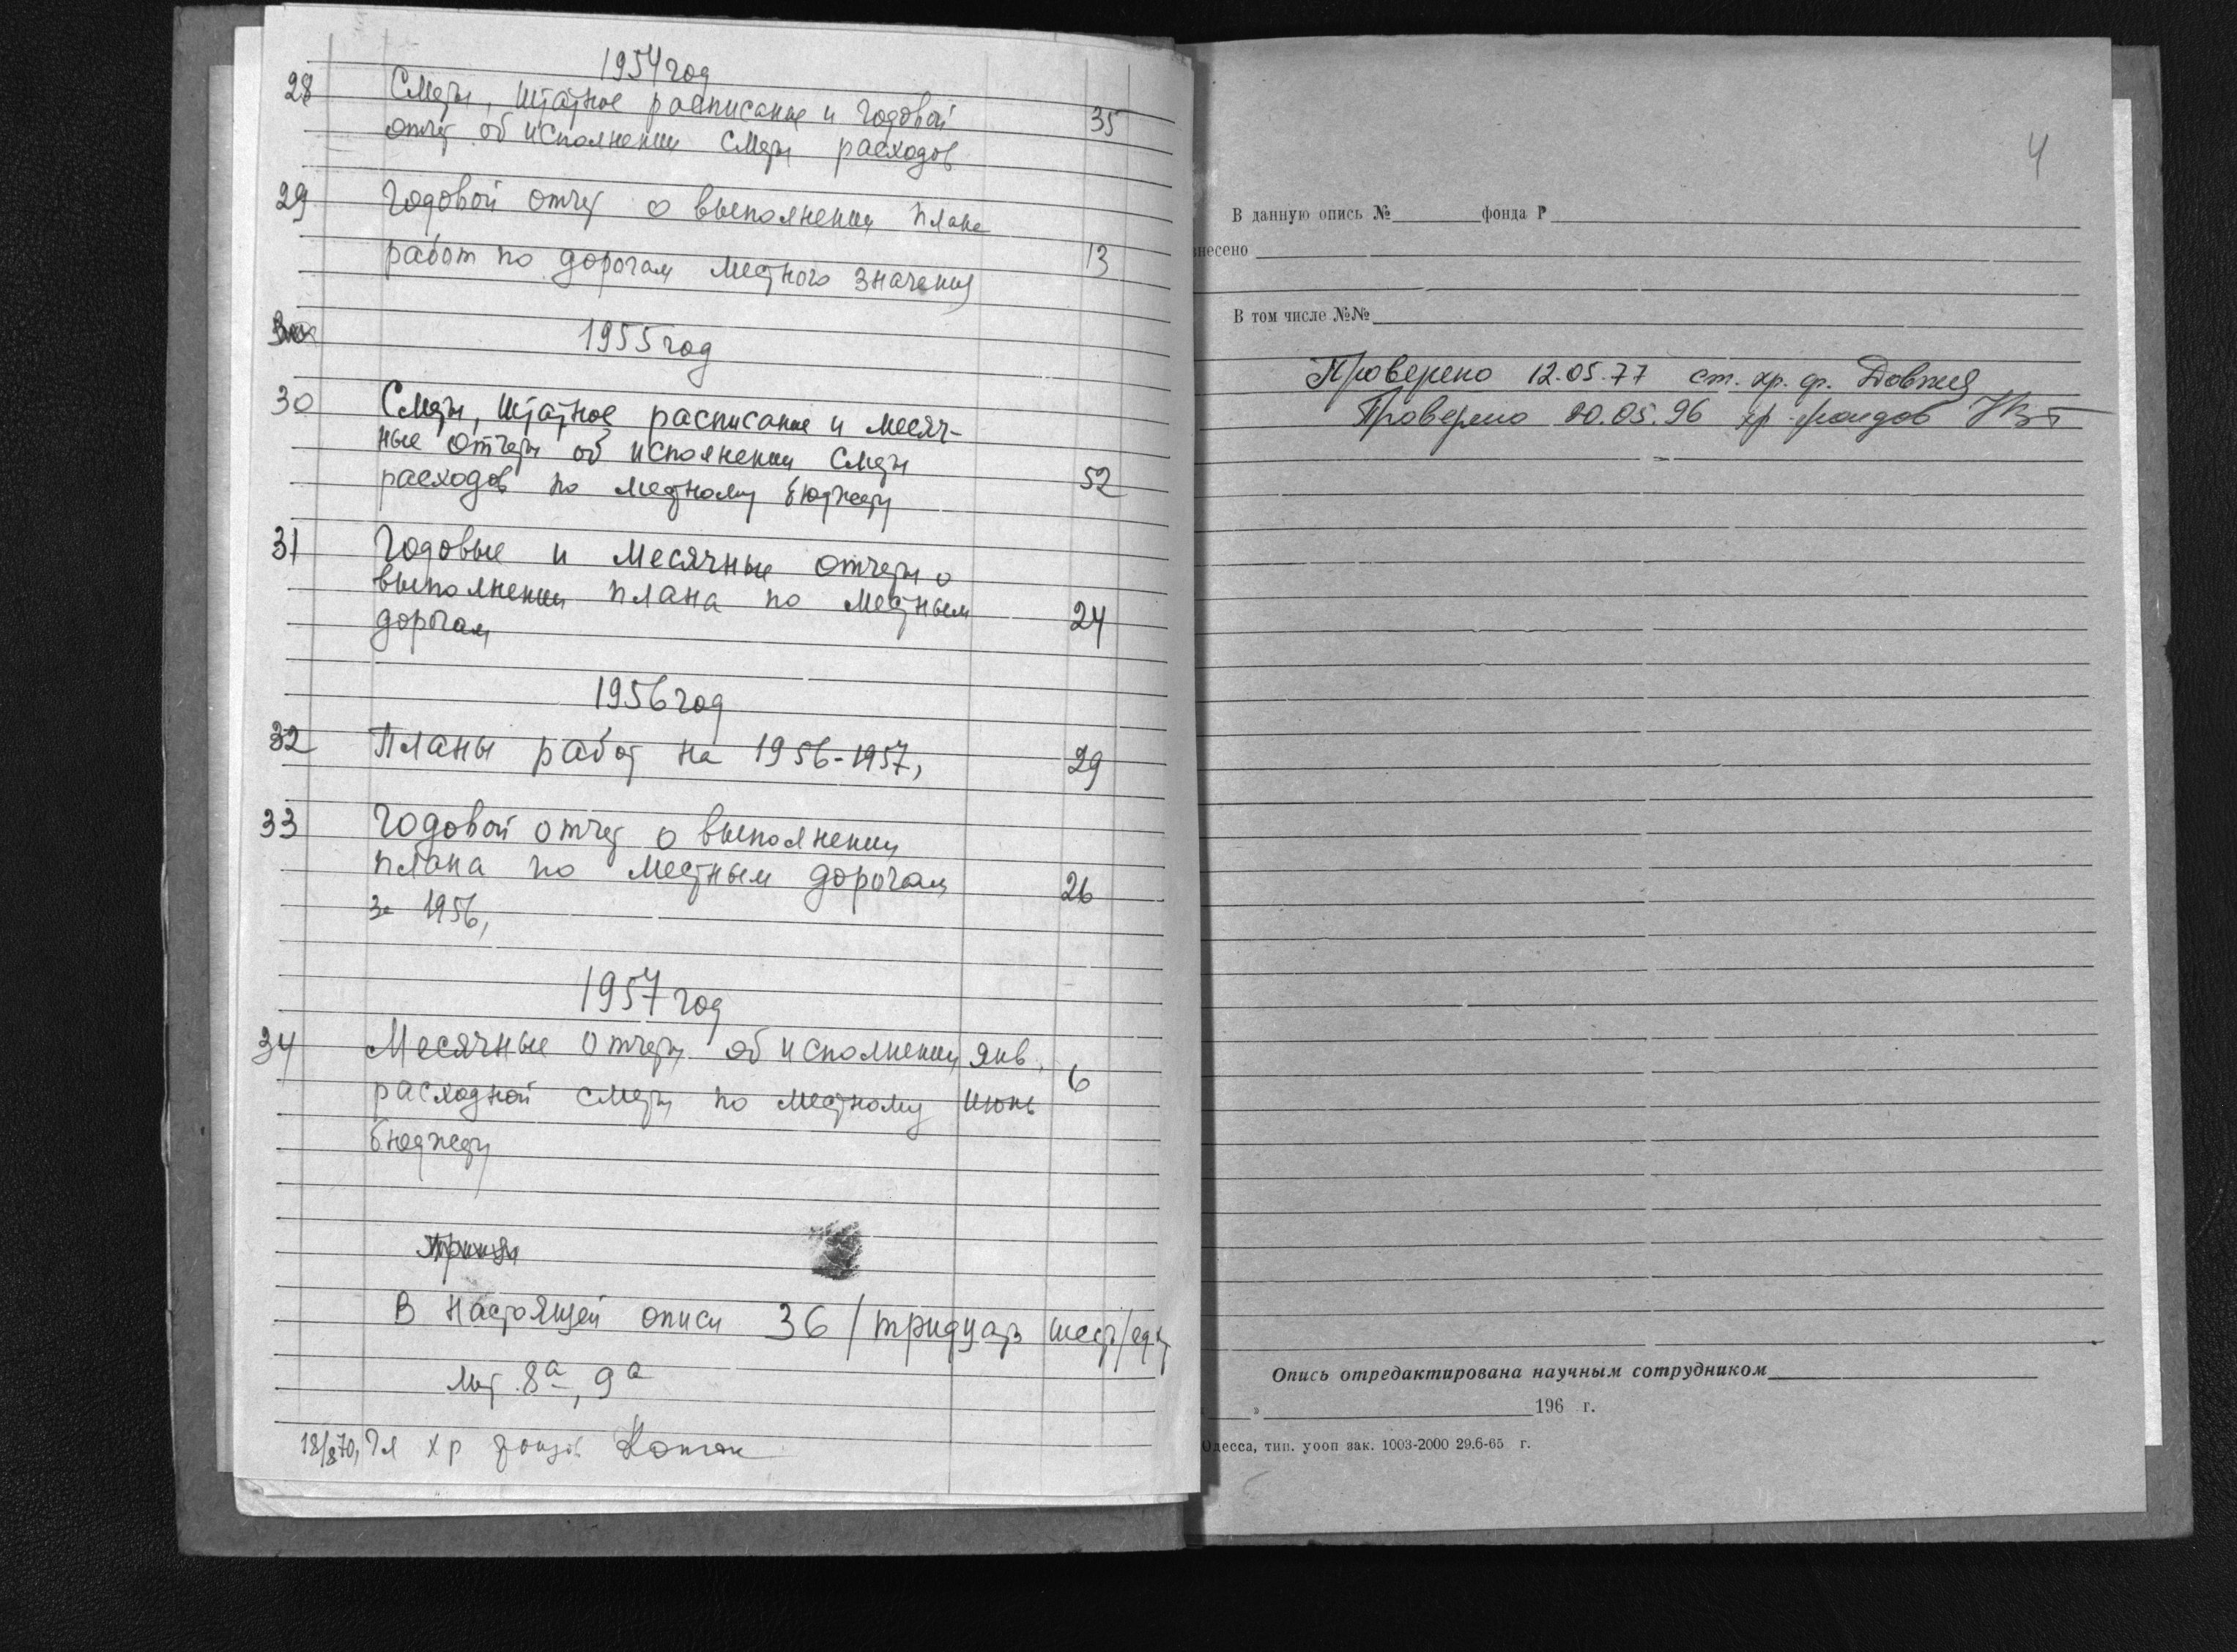 1954 год
28 Сметы, штатное расписание и годовой
отчет об исполнении сметы расходов 35
29 Годовой отчет о выполнении плана
работ по дорогам местного значения 13
1955 год
30 Сметы, штатное расписание и месяч-
ные отчеты об исполнении сметы
расходов по местному бюджету 52
31 Годовые и месячные отчеты о
выполнении плана по местным 24
дорогам
1956 год
32 Планы работ на 1956-1957, 29
33 Годовой отчет о выполнении
плана по местным дорогам 26
за 1956,
1957 год
34 Месячные отчеты об исполнении янв. 6
расходной сметы по местному июнь
бюджету
В настоящей описи 36 /тридцать шесть/ ед.х
Лит. 8а, 9а
18/8 70, Гл хр фондов
4
В данную опись № фонда Р
внесено
В том числе №№
Проверено 12.05.77 ст. хр. ф. Довгня
Проверено 20.05.96 хр. фондов
Опись отредактирована научным сотрудником
» 196 г.
Одесса, тип. уооп зак. 1003-2000 29.6-65 г.